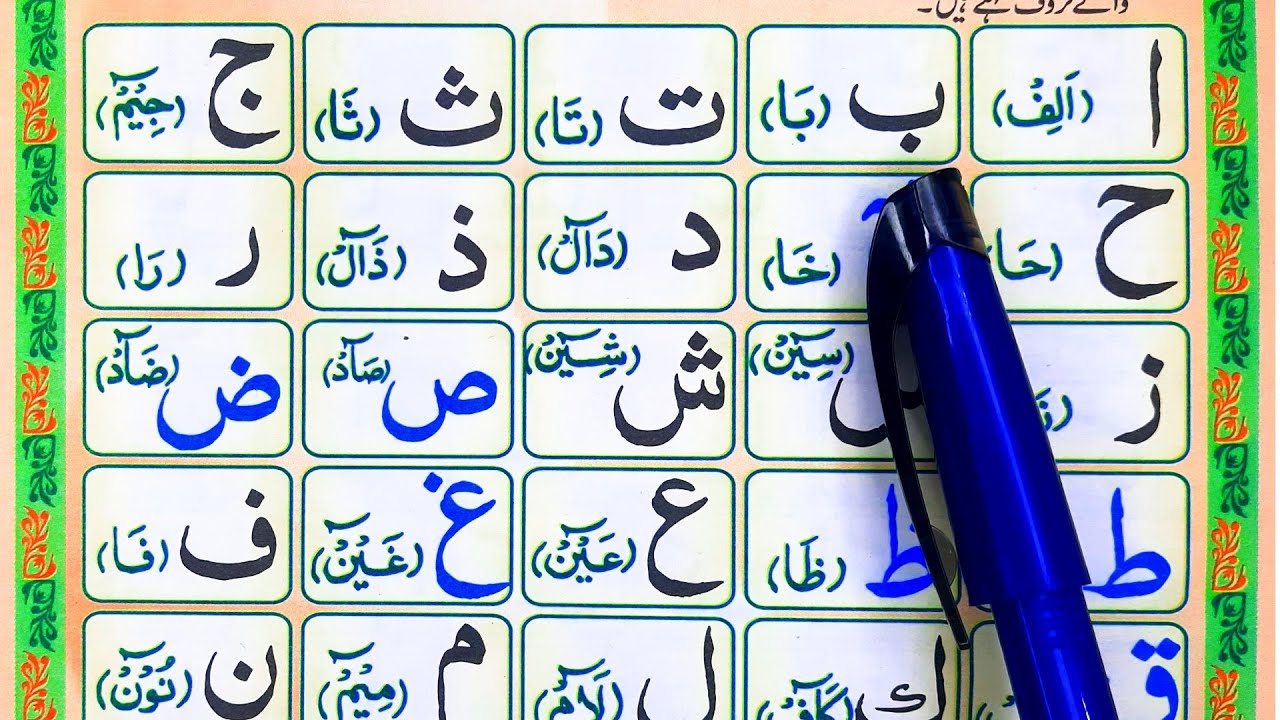 ا (اَلِفْ) ب (بَا) ت (تَا) ث (ثَا) ج (جِيْمٓ)
ح (حَا) (خَا) د (دَالْٓ) ذ (ذَالْٓ) ر (رَا)
ز (سِيْنٓ) ش (شِيْنٓ) ص (صَادْٓ) ض (ضَادْٓ)
ط ظ (ظَا) ع (عَيْنْٓ) غ (غَيْنْٓ) ف (فَا)
ق ك (كَافْٓ) ل (لَامْٓ) م (مِيْمْٓ) ن (نُوْنْٓ)